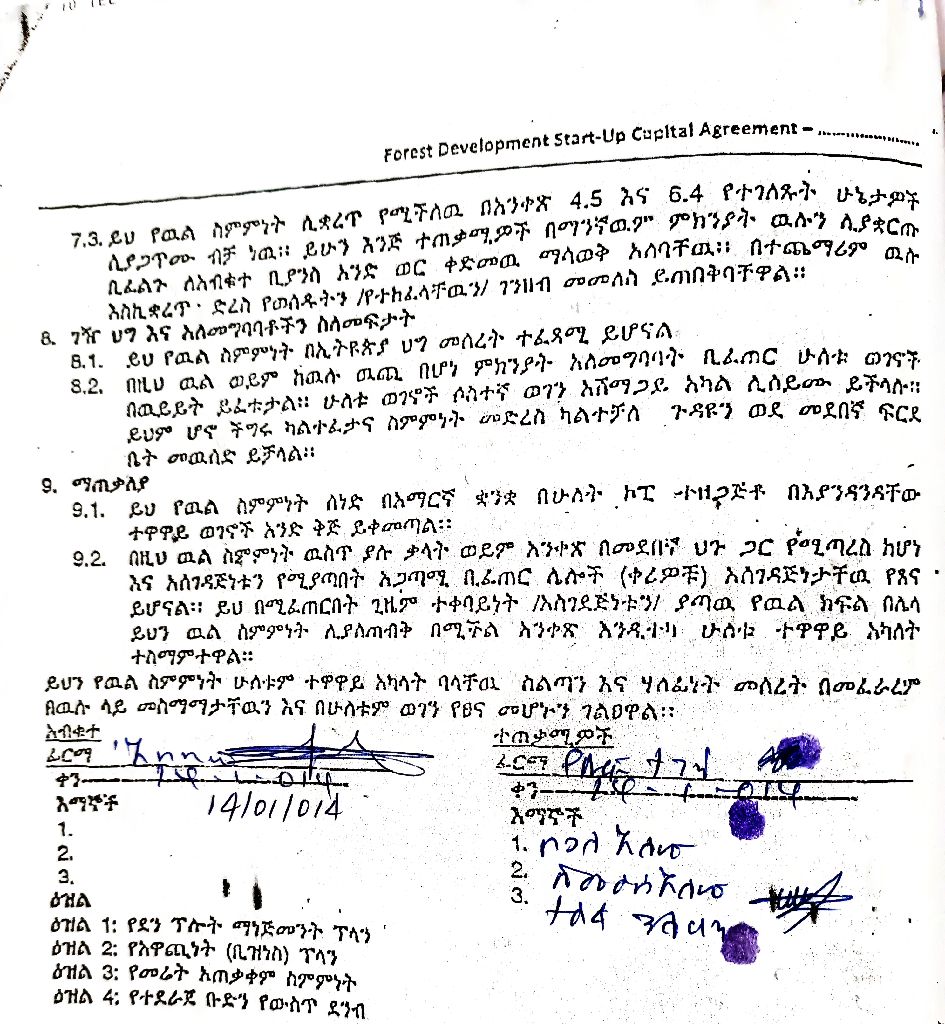 Forest Development Start-Up Capital Agreement – ......................
7.3. ይህ የዉል ስምምነት ሊቋረጥ የሚችለዉ በአንቀጽ 4.5 እና 6.4 የተገለጹት ሁኔታዎች
ሲያጋጥሙ ብቻ ነዉ። ይሁን እንጅ ተጠቃሚዎች በማንኛዉም ምክንያት ዉሉን ሊያቋርጡ
ቢፈልጉ ለአብቁተ ቢያንስ አንድ ወር ቀድመዉ ማሳወቅ አለባቸዉ። በተጨማሪም ዉሉ
እስኪቋረጥ ድረስ የወሰዱትን /የተከፈላቸዉን/ ገንዘብ መመለስ ይጠበቅባቸዋል።
8. ገዥ ህግ እና አለመግባባቶችን ስለመፍታት
8.1. ይህ የዉል ስምምነት በኢትዩጵያ ህግ መሰረት ተፈጻሚ ይሆናል
8.2. በዚህ ዉል ወይም ከዉሉ ዉጪ በሆነ ምክንያት አለመግባባት ቢፈጠር ሁለቱ ወገኖች
በዉይይት ይፈቱታል። ሁለቱ ወገኖች ሶስተኛ ወገን አሸማጋይ አካል ሊሰይሙ ይችላሉ።
ይህም ሆኖ ችግሩ ካልተፈታና ስምምነት መድረስ ካልተቻለ ጉዳዩን ወደ መደበኛ ፍርደ
ቤት መዉሰድ ይቻላል።
9. ማጠቃለያ
9.1. ይህ የዉል ስምምነት ሰነድ በአማርኛ ቋንቋ በሁለት ኮፒ ተዘጋጅቶ በእያንዳንዳቸው
ተዋዋይ ወገኖች አንድ ቅጅ ይቀመጣል።
9.2. በዚህ ዉል ስምምነት ዉስጥ ያሉ ቃላት ወይም አንቀጽ በመደበኛ ህጉ ጋር የሚጣረስ ከሆነ
እና አስገዳጅነቱን የሚያጣበት አጋጣሚ ቢፈጠር ሌሎች (ቀሪዎቹ) አስገዳጅነታቸዉ የጸና
ይሆናል። ይህ በሚፈጠርበት ጊዜም ተቀባይነት /አስገደጅነቱን/ ያጣዉ የዉል ክፍል በሌላ
ይህን ዉል ስምምነት ሊያስጠብቅ በሚችል አንቀጽ እንዲተካ ሁለቱ ተዋዋይ አካለት
ተስማምተዋል።
ይህን የዉል ስምምነት ሁለቱም ተዋዋይ አካላት ባላቸዉ ስልጣን እና ሃላፊነት መሰረት በመፈራረም
በዉሉ ላይ መስማማታቸዉን እና በሁለቱም ወገን የፀና መሆኑን ገልፀዋል።
አብቁተ
ፊርማ
ቀን 14-1-014
14/01/014
እማኞች
1.
2.
3.
ተጠቃሚዎች
ፊርማ
ቀን 14-1-014
እማኞች
1.
2.
3.
ዕዝል
ዕዝል 1: የደን ጥሎት ማነጅመንት ፕላን
ዕዝል 2: የአዋጪነት (ቢዝነስ) ፕላን
ዕዝል 3: የመሬት አጠቃቀም ስምምነት
ዕዝል 4: የተደራጀ ቡድን የውስጥ ደንብ